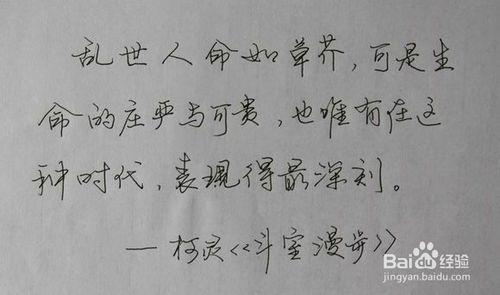 乱世人命如草芥，可是生
命的庄严与可贵，也唯有在这
种时代，表现得最深刻。
——柯灵《斗室漫步》
Baidu经验
jingyan.baidu.com